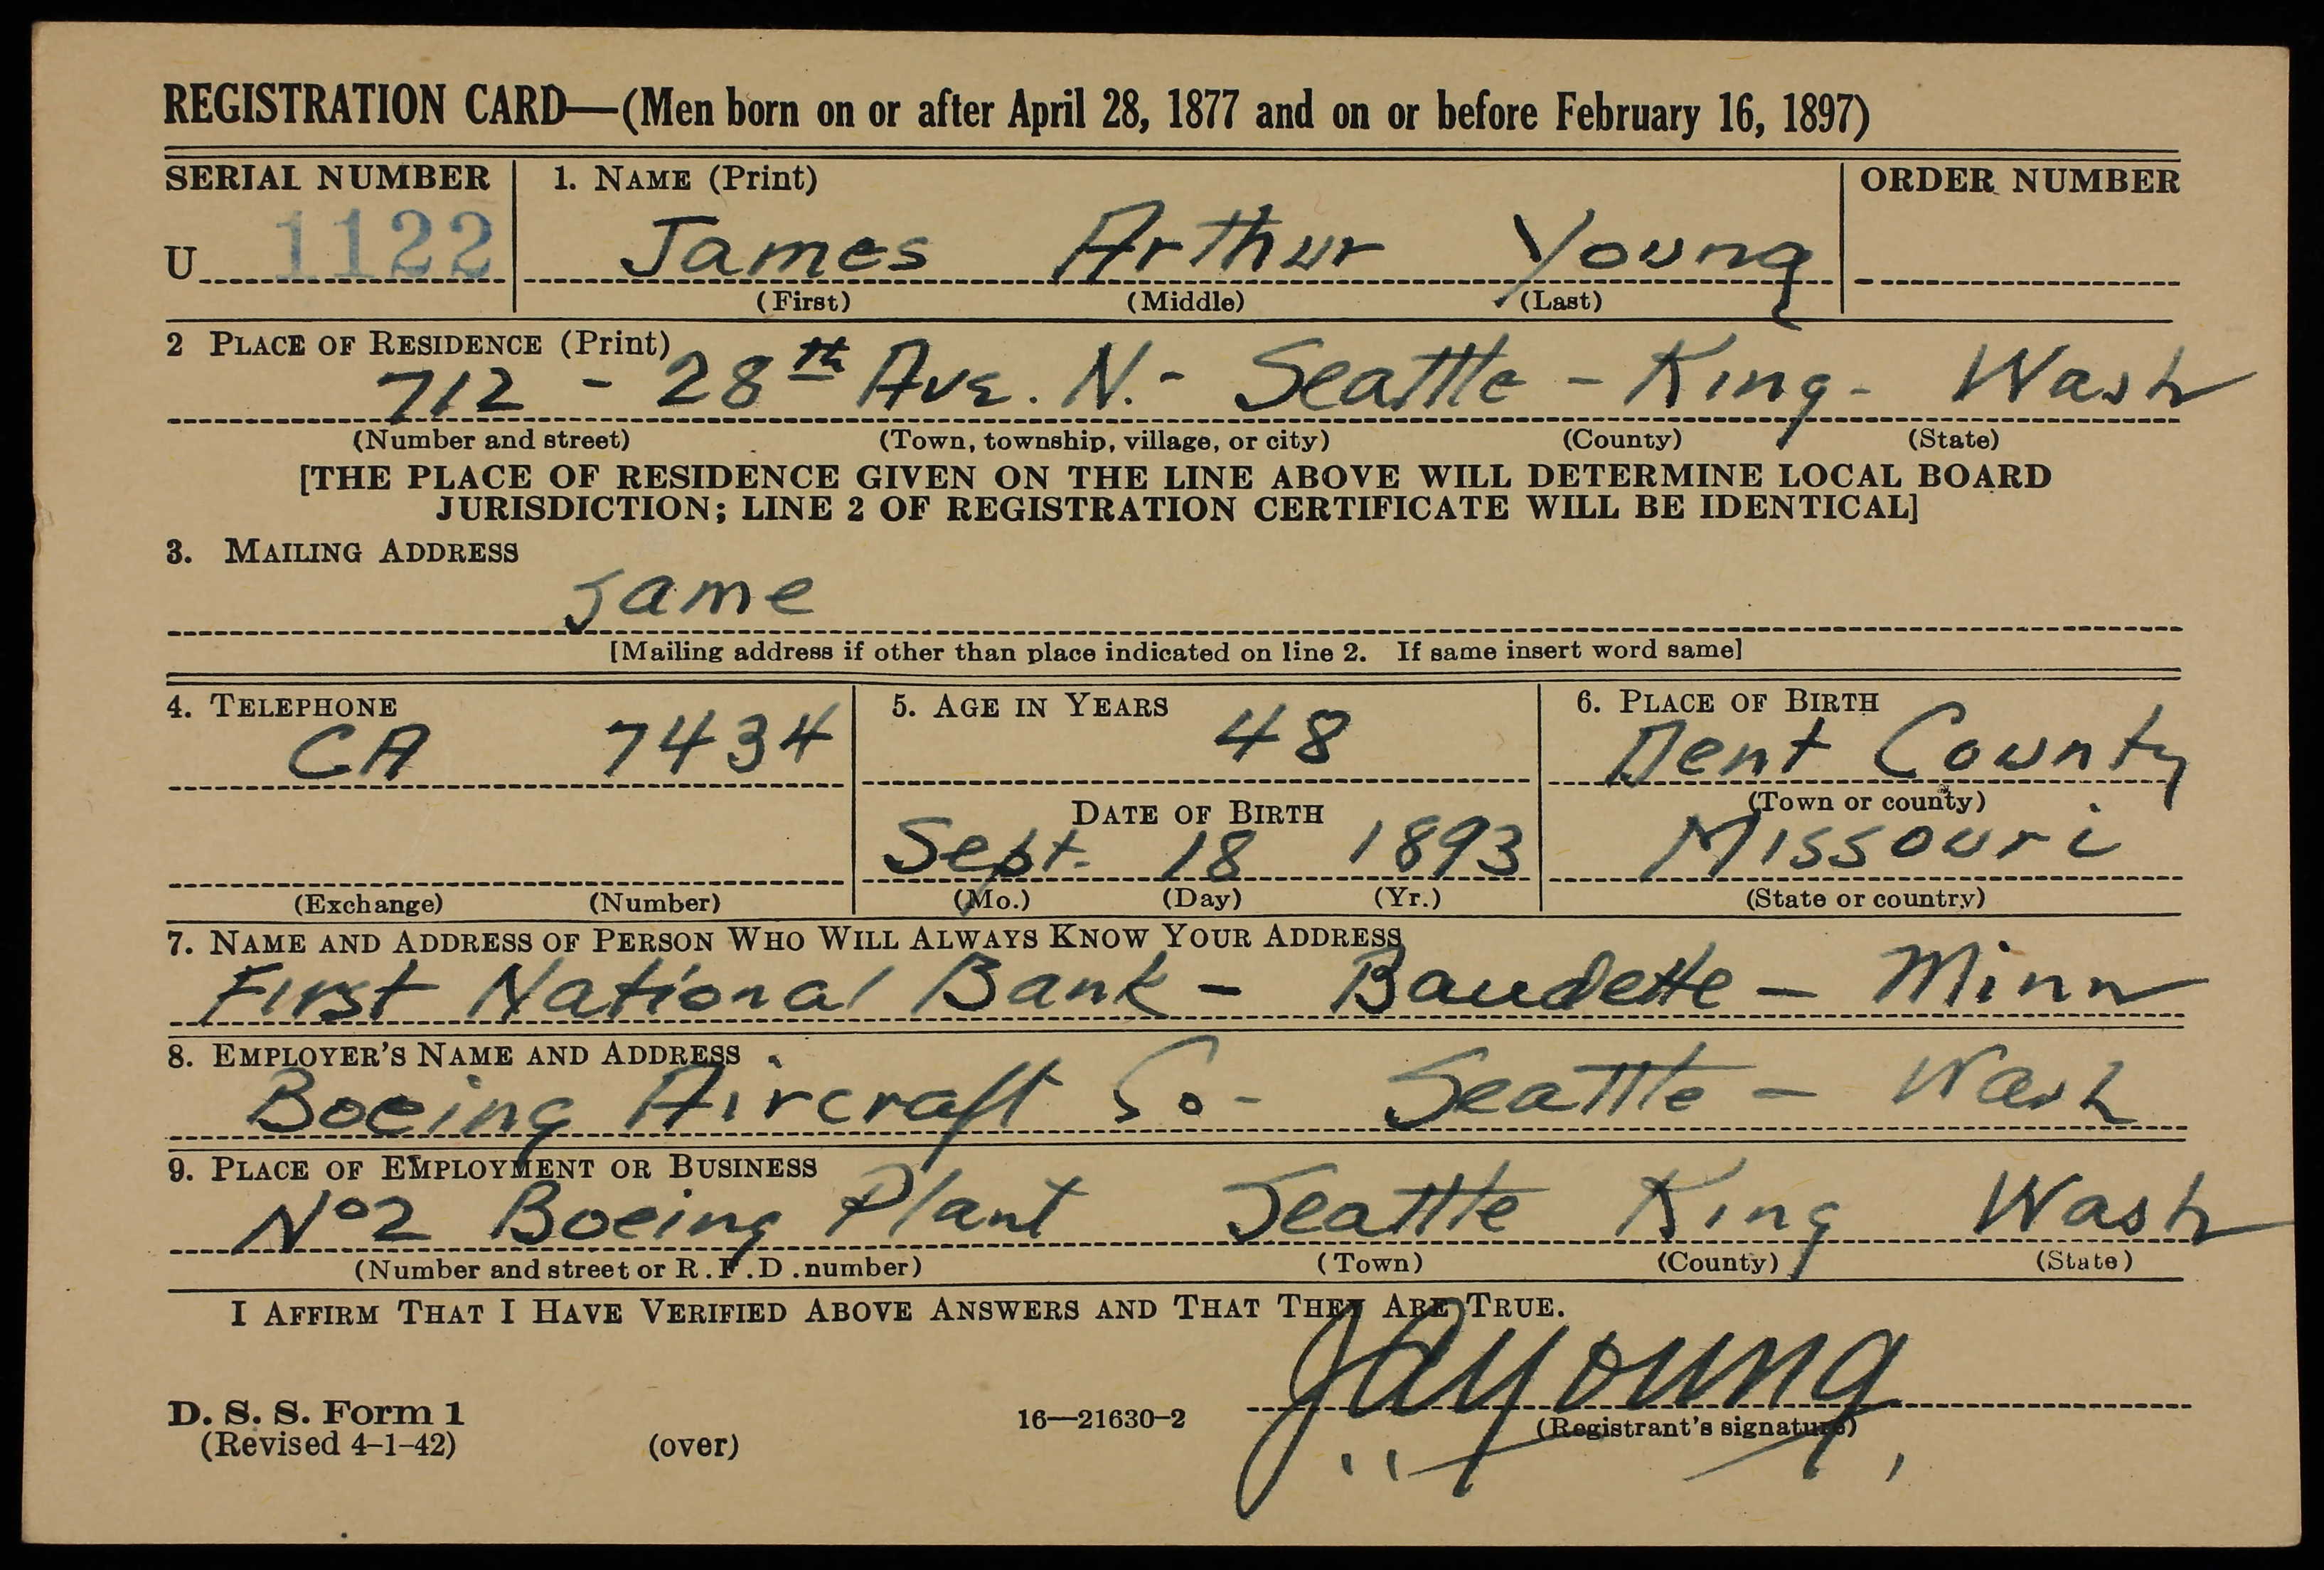 REGISTRATION CARD—(Men born on or after April 28, 1877 and on or before February 16, 1897)
SERIAL NUMBER 1. NAME (Print) ORDER NUMBER
U 1122 James Arthur Young
(First) (Middle) (Last)
2 PLACE OF RESIDENCE (Print)
712 - 28th Ave. N. - Seattle - King - Wash
(Number and street) (Town, township, village, or city) (County) (State)
[THE PLACE OF RESIDENCE GIVEN ON THE LINE ABOVE WILL DETERMINE LOCAL BOARD
JURISDICTION; LINE 2 OF REGISTRATION CERTIFICATE WILL BE IDENTICAL]
3. MAILING ADDRESS
same
[Mailing address if other than place indicated on line 2. If same insert word same]
4. TELEPHONE 5. AGE IN YEARS 6. PLACE OF BIRTH
CA 7434 48 Dent County
DATE OF BIRTH (Town or county)
Sept. 18 1893 Missouri
(Exchange) (Number) (Mo.) (Day) (Yr.) (State or country)
7. NAME AND ADDRESS OF PERSON WHO WILL ALWAYS KNOW YOUR ADDRESS
First National Bank - Baudette - Minn
8. EMPLOYER'S NAME AND ADDRESS
Boeing Aircraft Co - Seattle - Wash
9. PLACE OF EMPLOYMENT OR BUSINESS
No 2 Boeing Plant Seattle King Wash
(Number and street or R.F.D. number) (Town) (County) (State)
I AFFIRM THAT I HAVE VERIFIED ABOVE ANSWERS AND THAT THEY ARE TRUE.
JAYoung
D. S. S. Form 1 16—21630-2 (Registrant's signature)
(Revised 4-1-42) (over)